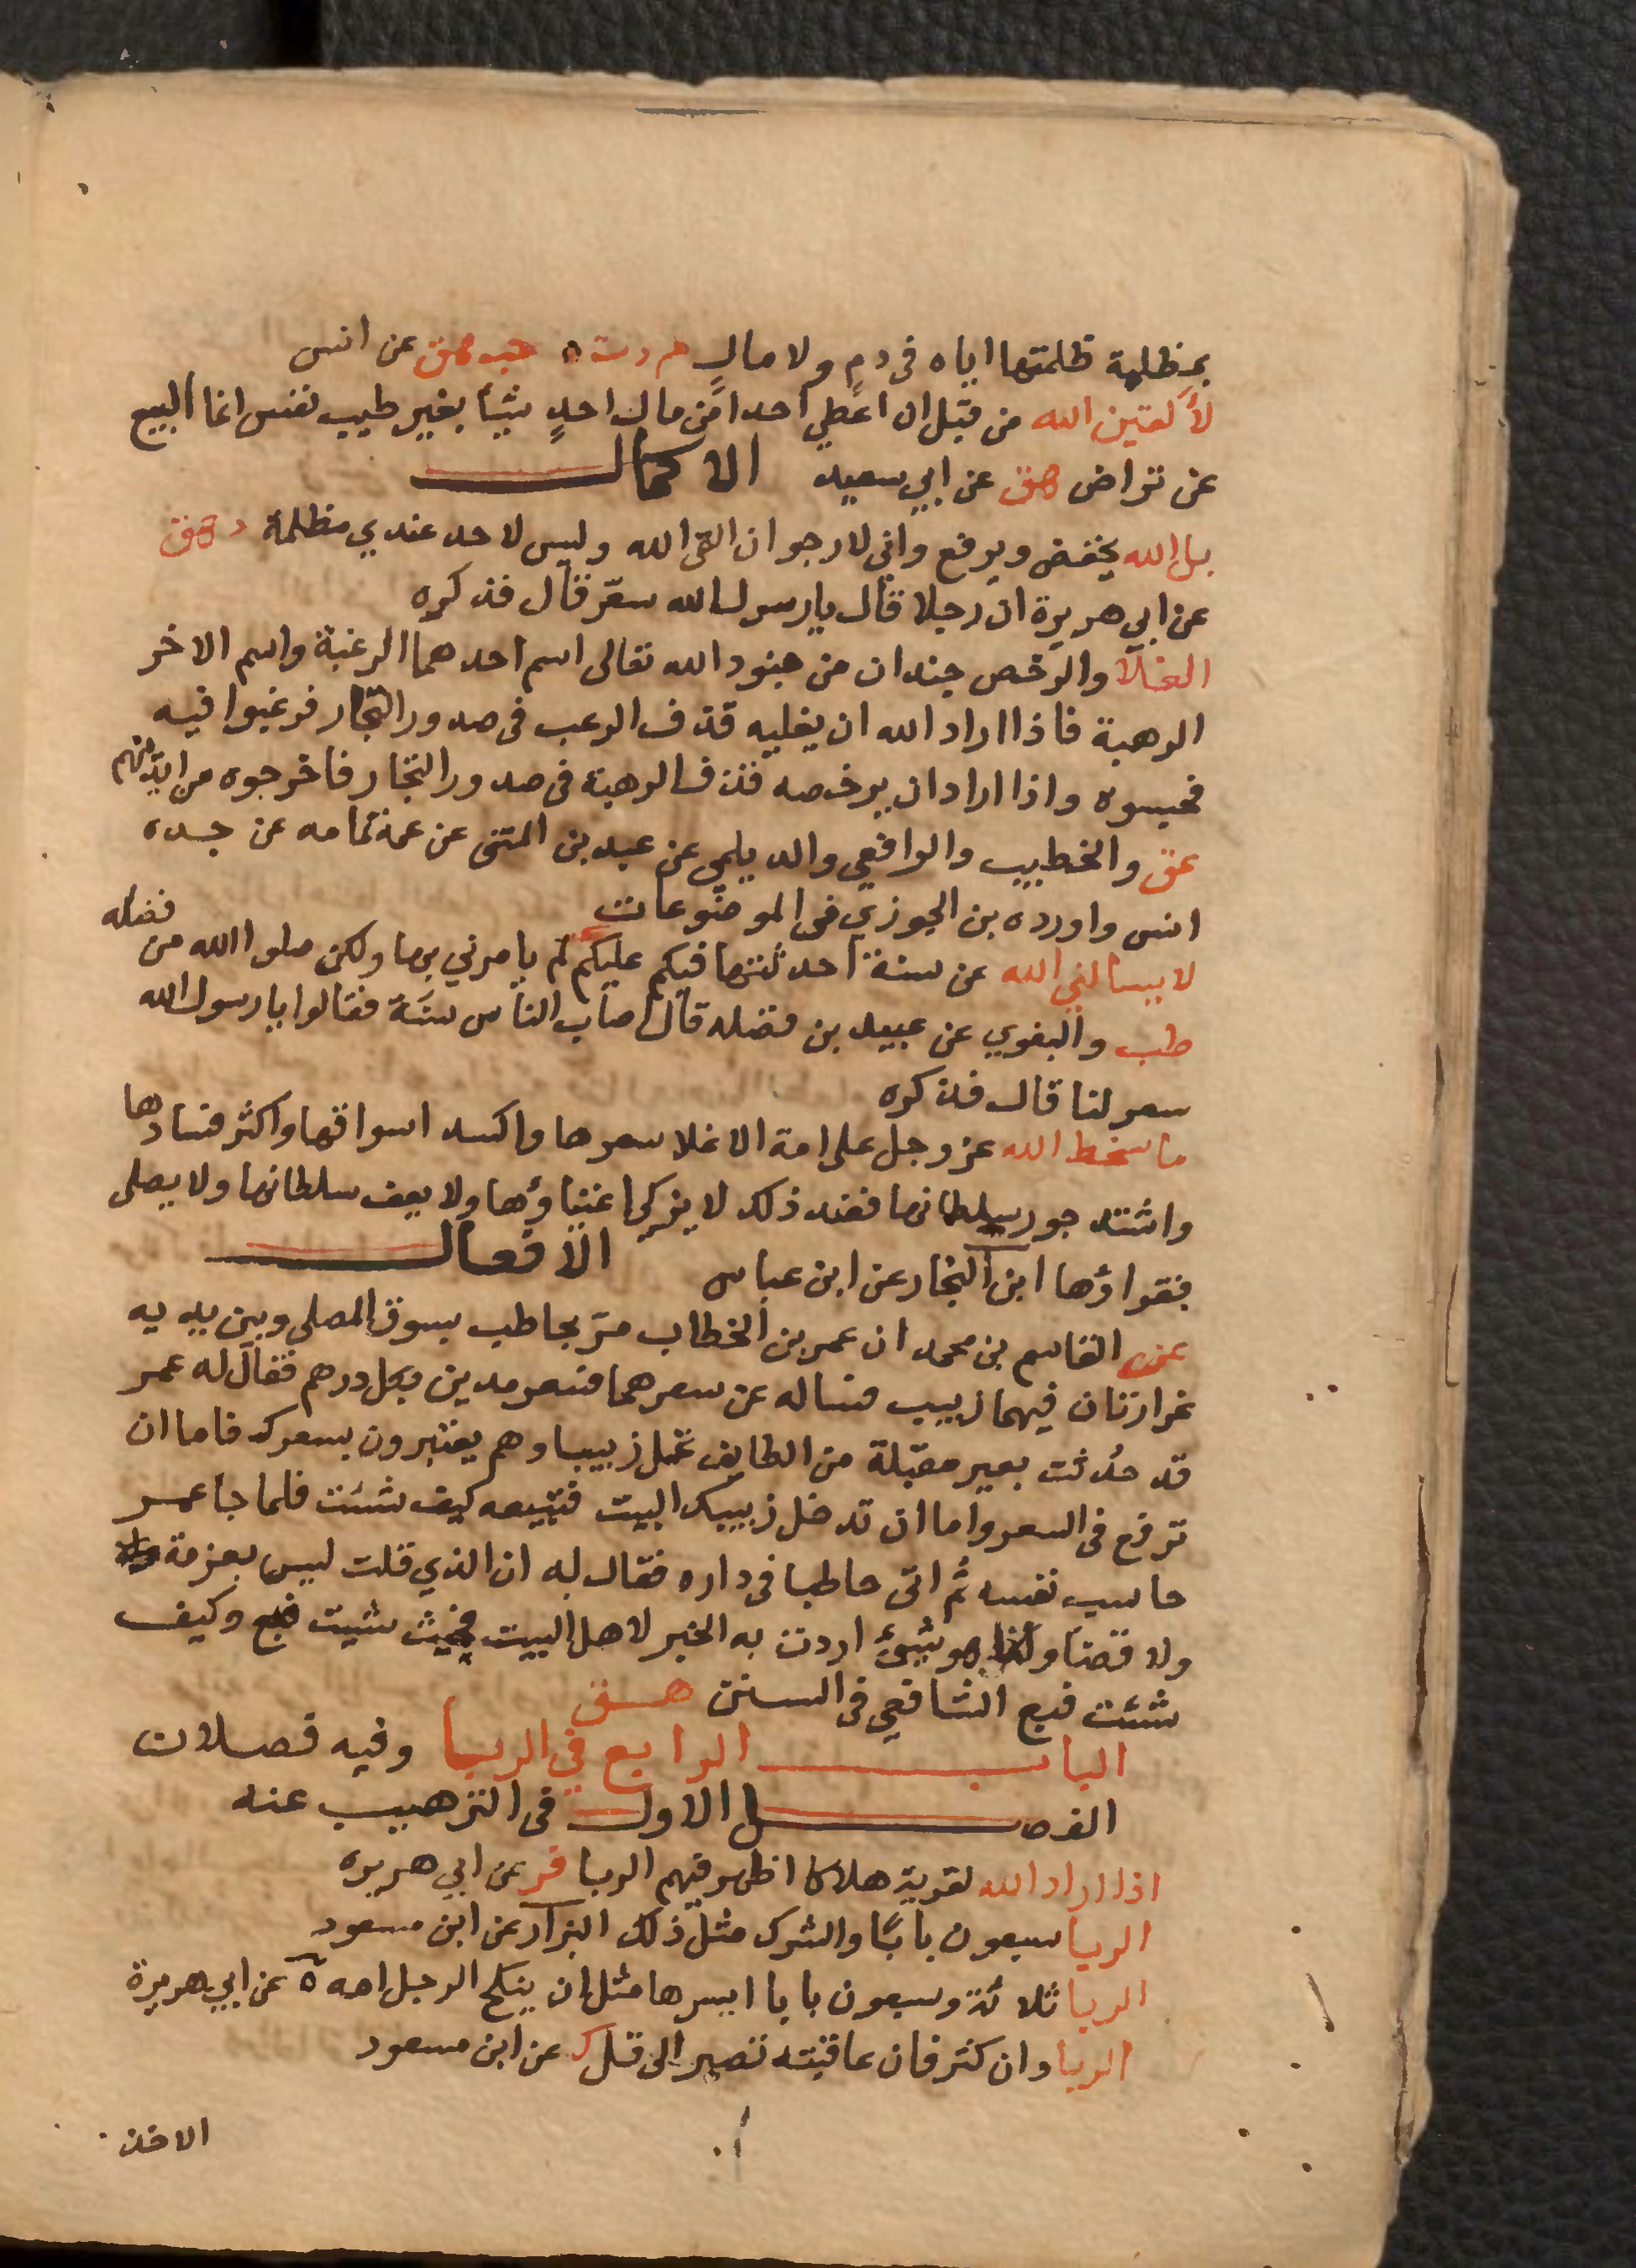 بمظلمة ظلمتها اياه في دم ولا مال حم د ت ه حب هق عن انس
لألقين الله من قبل ان اعطي احدا من مال احدٍ شيئا بغير طيب نفس انما البيع
عن تراض هق عن ابي سعيد الاكمال
بل الله يخفض ويرفع واني لارجو ان القى الله وليس لاحد عندي مظلمة د هق
عن ابي هريرة ان رجلا قال يا رسول الله سعّر قال فذكره
الغلا والرخص جندان من جنود الله تعالى اسم احدهما الرغبة واسم الاخر
الرهبة فاذا اراد الله ان يغليه قذف الرعب في صدور التجار فرغبوا فيه
فحبسوه واذا اراد ان يرخصه قذف الرهبة في صدور التجار فاخرجوه من ايديهم
عق والخطيب والرافعي والديلمي عن عبد بن المثنى عن عمه ثمامه عن جده
انس واورده بن الجوزي في الموضوعات
لا يسالني الله عن سنة احدثتها فيكم عليكم لم يامرني بها ولكن سلوا الله من فضله
طب والبغوي عن عبيد بن فضله قال اصاب الناس سنة فقالوا يا رسول الله
سعر لنا قال فذكره
ما سخط الله عز وجل على امة الا غلا سعرها واكسد اسواقها واكثر فسادها
واشتد جور سلطانها فعند ذلك لا يزكي اغنياؤها ولا يعف سلطانها ولا يصلى
فقراؤها ابن النجار عن ابن عباس الافعال
عن القاسم بن محمد ان عمر بن الخطاب مرّ بحاطب بسوق المصلى وبين يديه
غرارتان فيهما زبيب فساله عن سعرهما فسعر مدين بكل درهم فقال له عمر
قد حُدثت بعير مقبلة من الطايف تحمل زبيبا وهم يعتبرون بسعرك فاما ان
ترفع في السعر واما ان تدخل زبيبك البيت فتبيعه كيف شئت فلما جا عمر
حاسب نفسه ثم اتى حاطبا في داره فقال له ان الذي قلت ليس بعزمة
ولا قضآ وانما هو شيئ اردت به الخير لاهل البيت فحيث شيت فبع وكيف
شئت فبع الشافعي في السنن هق
الباب الرابع في الربا وفيه فصلان
الفصل الاول في الترهيب عنه
اذا اراد الله لقرية هلاكا اظهر فيهم الربا فر عن ابي هريره
الربا سبعون بابًا والشرك مثل ذلك البزار عن ابن مسعود
الربا ثلاثة وسبعون بابا ايسرها مثل ان ينكح الرجل امه ه عن ابي هريرة
الربا وان كثر فان عاقبته تصير الى قل ك عن ابن مسعود
الاخذ